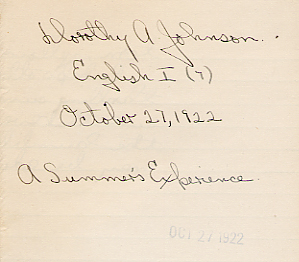 Dorothy A Johnson.
English I (7)
October 27, 1922
A Summer's Experience.
OCT 27 1922